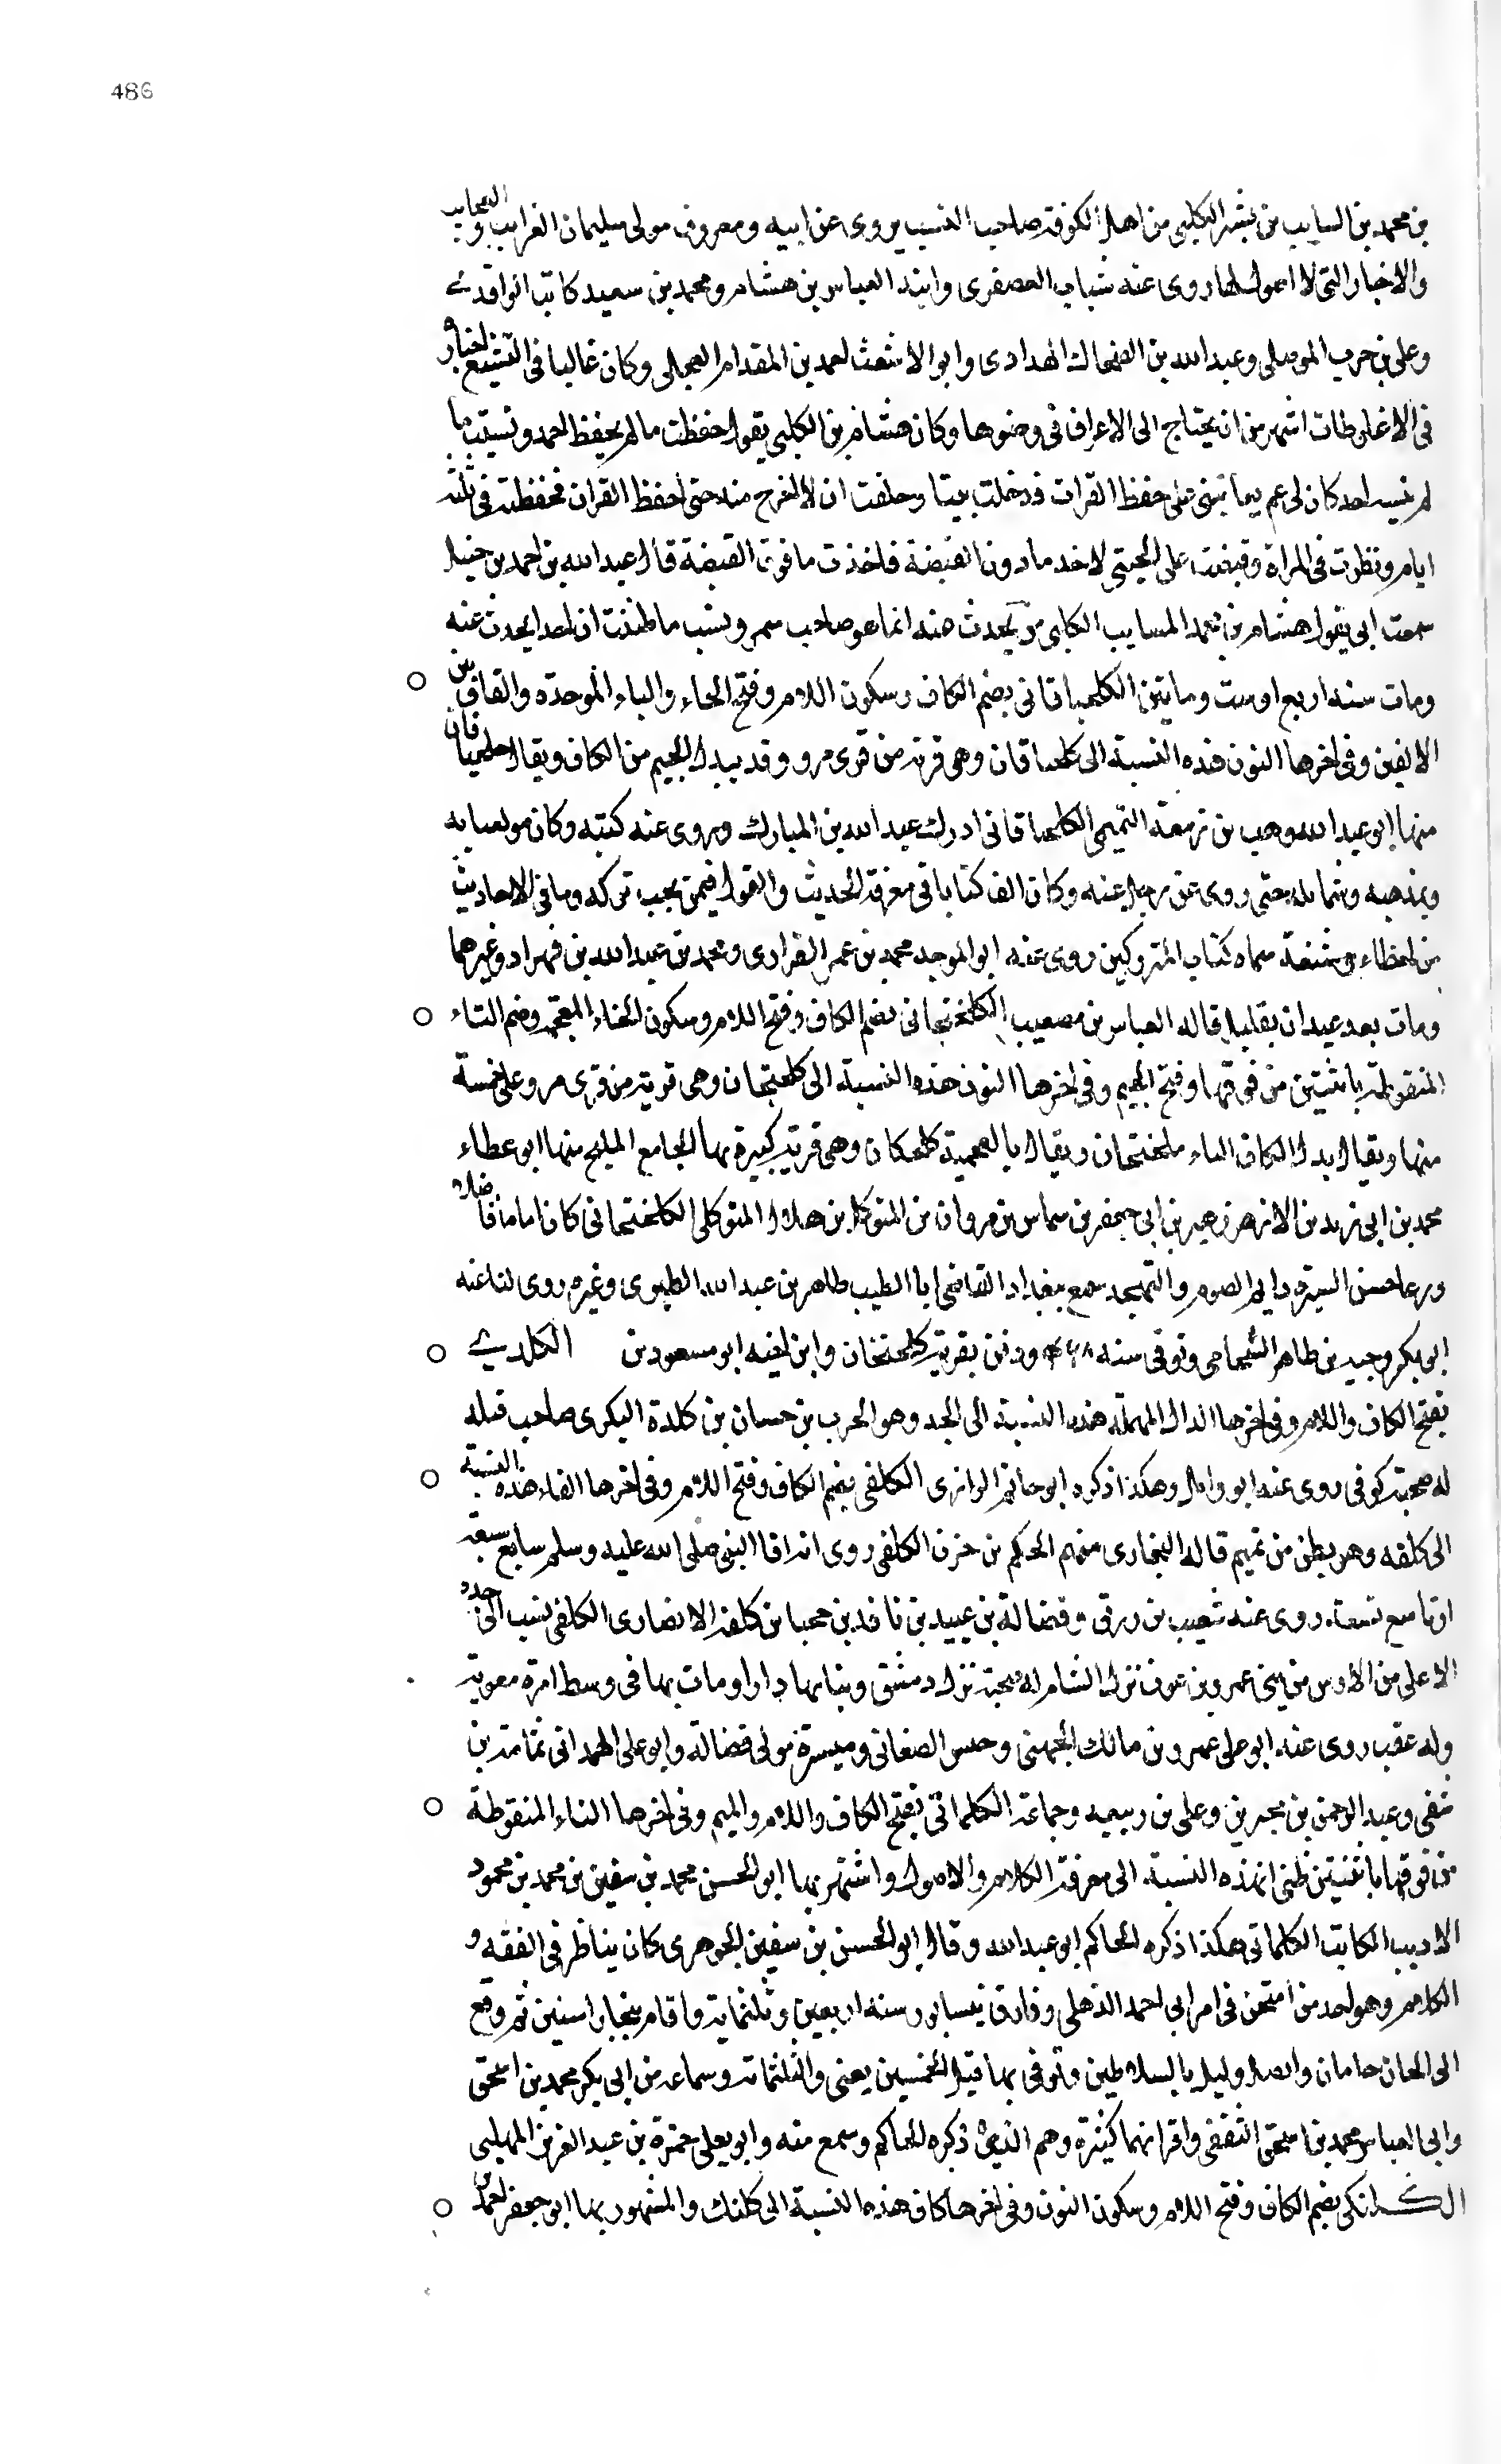 486
بن محمد بن السايب بن بشر الكلبى من اهل الكوفة صاحب النسب يروى عن ابيه ومعروف مولى سليمان الغرايب والعجايب
والاخبار التى لا اصول لها روى عنه شباب العصفرى وابنه العباس بن هشام ومحمد بن سعيد كاتب الواقدى
وعلى بن حرب الموصلى وعبد الله بن الضحاك الهدادى وابو الاشعث احمد بن المقدام العجلى وكان غاليا فى التشيع اخباره
فى الاغلوطات اشهر من ان يحتاج الى الاغراق فى وصفها وكان هشام بن الكلبى يقول حفظت ما لم يحفظ احد ونسيت ما
لم ينسه احد كان لى عم يعاتبنى على حفظ القران فدخلت بيتا وحلفت ان لا اخرج منه حتى احفظ القران فحفظته فى ثلثة
ايام ونظرت فى المراة وقبضت على لحيتى لاخذ ما دون القبضة فاخذت ما فوق القبضة قال عبد الله بن احمد بن حنبل
سمعت ابى يقول هشام بن محمد السايب الكلبى من يحدث عنه انما هو صاحب سمر ونسب ما ظننت ان احدا يحدث عنه
ومات سنه اربع او ست ومايتين الكلحباقانى بضم الكاف وسكون اللام وفتح الحاء والباء الموحدة والقاف بين
الالفين وفى اخرها النون هذه النسبة الى كلحباقان وهى قرية من قرى مرو وقد يبدل الجيم من الكاف ويقال
منها ابو عبد الله وهب بن زمعة التميمى الكلحباقانى ادرك عبد الله بن المبارك ويروى عنه كتبه وكان مولعا به
وبمذهبه وشمايله حتى روى عن رجل عنه وكان الف كتابا فى معرفة الحديث والقول فيمن يجب تركه وما فى الاحاديث
من اخطاء سماه كتاب المتروكين روى عنه ابو الموجه محمد بن عمرو الفزارى ومحمد بن عبد الله بن قهزاد وغيرهما
ومات بعد عبدان بقليل قاله العباس بن مصعب الكلختجانى بضم الكاف وفتح اللام وسكون الخاء المعجمة وضم التاء
المنقوطة باثنتين من فوقها وفتح الجيم وفى اخرها النون هذه النسبة الى كلختجان وهى قرية من قرى مرو على خمسة
منها ويقال بدل الكاف ويقال بالعجمية وهى قرية كبيرة بها الجامع المليح منها ابو عطاء
محمد بن ابى زيد بن الازهر زهير بن ابى جعفر بن سماس بن مروان بن المتوكل بن هلال المتوكلى الكلختجانى كان اماما فاضلا
ورعا حسن السيرة دايم الصوم والتهجد سمع ببغداد القاضى ابا الطيب طاهر بن عبد الله الطبرى وغيره روى لنا عنه
ابو بكر وجيه بن طاهر الشحامى وتوفى سنه ودفن بقرية وابن اخيه ابو مسعود بن الكلدى
بفتح الكاف واللام وفى اخرها الدال المهملة هذه النسبة الى الجد وهو الحرب بن حسان بن كلدة البكرى صاحب قيله
له صحبة كوفى روى عنه ابو وايل وهكذا ذكره ابو حاتم الرازى الكلفى بضم الكاف وفتح اللام وفى اخرها الفاء هذه النسبة
الى كلفه وهو بطن من تميم قاله البخارى منهم الحكم بن حزن الكلفى روى انه اتا النبى صلى الله عليه وسلم سابع سبعة
او تاسع تسعة روى عنه شعيب بن رزيق وفضالة بن عبيد بن نافد بن صحبا بن كلفة الانصارى الكلفى نسب الى جده
الاعلى من الاوس من بنى عمرو بن عوف نزل الشام له صحبة نزل دمشق وبنا بها دارا ومات بها فى وسط امرة معوية
وله عقب روى عنه ابو على عمرو بن مالك الجهنى وحنس الصغانى وميسرة مولى فضالة وابو على الهمدانى ثمامة بن
شفى وعبد الرحمن بن محيريز وعلى بن وجماعة الكلماتى بفتح الكاف واللام والميم وفى اخرها التاء المنقوطة
من فوقها باثنتين ظنى ان هذه النسبة الى معرفة الكلام والاصول واشتهر بها ابو الحسن محمد بن سفين بن محمد بن محمود
الاديب الكاتب الكلماتى هكذا ذكره الحاكم ابو عبد الله وقال ابو الحسن بن سفين الجوهرى كان يناظر فى الفقه و
الكلام وهو احد من امتحن فى امر ابى احمد الذهلى وفارق نيسابور سنه اربعين وثلثماية واقام ببخارا سنين ثم وقع
الى واتصل وليل بالسلاطين وتوفى بها قبل الخمسين يعنى والثلثماية وسماعه من ابى بكر محمد بن اسحق
وابى العباس محمد بن اسحق الثقفى واقرانهما كثيرة وهم الذى ذكره الحاكم وسمع منه وابو يعلى حمزة بن عبد العزيز المهلبى
الكلنكى بضم الكاف وفتح اللام وسكون النون وفى اخرها كاف هذه النسبة الى كلنك والمشهور بها ابو جعفر احمد بن